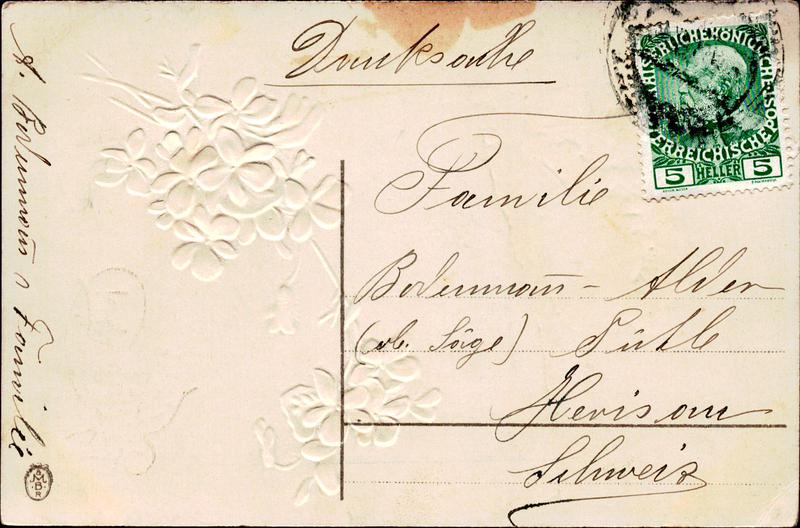 Drucksache
KAISERLICHE KÖNIGLICHE ÖSTERREICHISCHE POST
5 HELLER 5
Familie
Bodenmann - Alder
(ob. Säge)
Herisau
Schweiz
A. Bodenmann u Familie